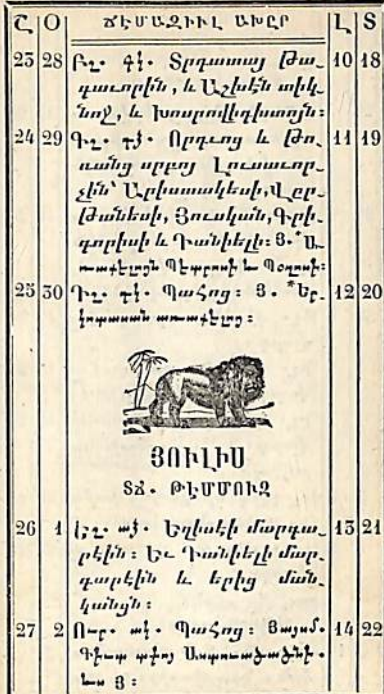 Շ Օ ՃԷՄԱԶԻԻԼ ԱԽԸՐ Լ Տ
23 28 Բշ. դկ. Տրդատայ Թա֊ 10 18
գաւորին, և Աշխէն տիկ֊
նոջ, և Խոսրովիդխտոյն։
24 29 Գշ. դձ. Որդւոց և Թո֊ 11 19
ռանց սրբոյ Լուսաւոր֊
չին՝ Արիստակեսի, Վըր֊
թանեսի, Յուսկան, Գրի֊
գորիսի և Դանիելի։ Յ. *Ա֊
ռաքելոցն Պետրոսի և Պօղոսի։
25 30 Դշ. գկ. Պահոց։ Յ. *Եր֊ 12 20
կոտասան առաքելոց։
ՅՈՒԼԻՍ
ՏՃ. ԹԷՄՄՈՒԶ
26 1 Եշ. աձ. Եղիսէի մարգա֊ 13 21
րէին։ Եւ Դանիելի մար֊
գարէին և երից ման֊
կանցն։
27 2 Ուր. ակ. Պահոց։ Յայսմ. 14 22
Գիւտ տփոյ Աստուածածնի.